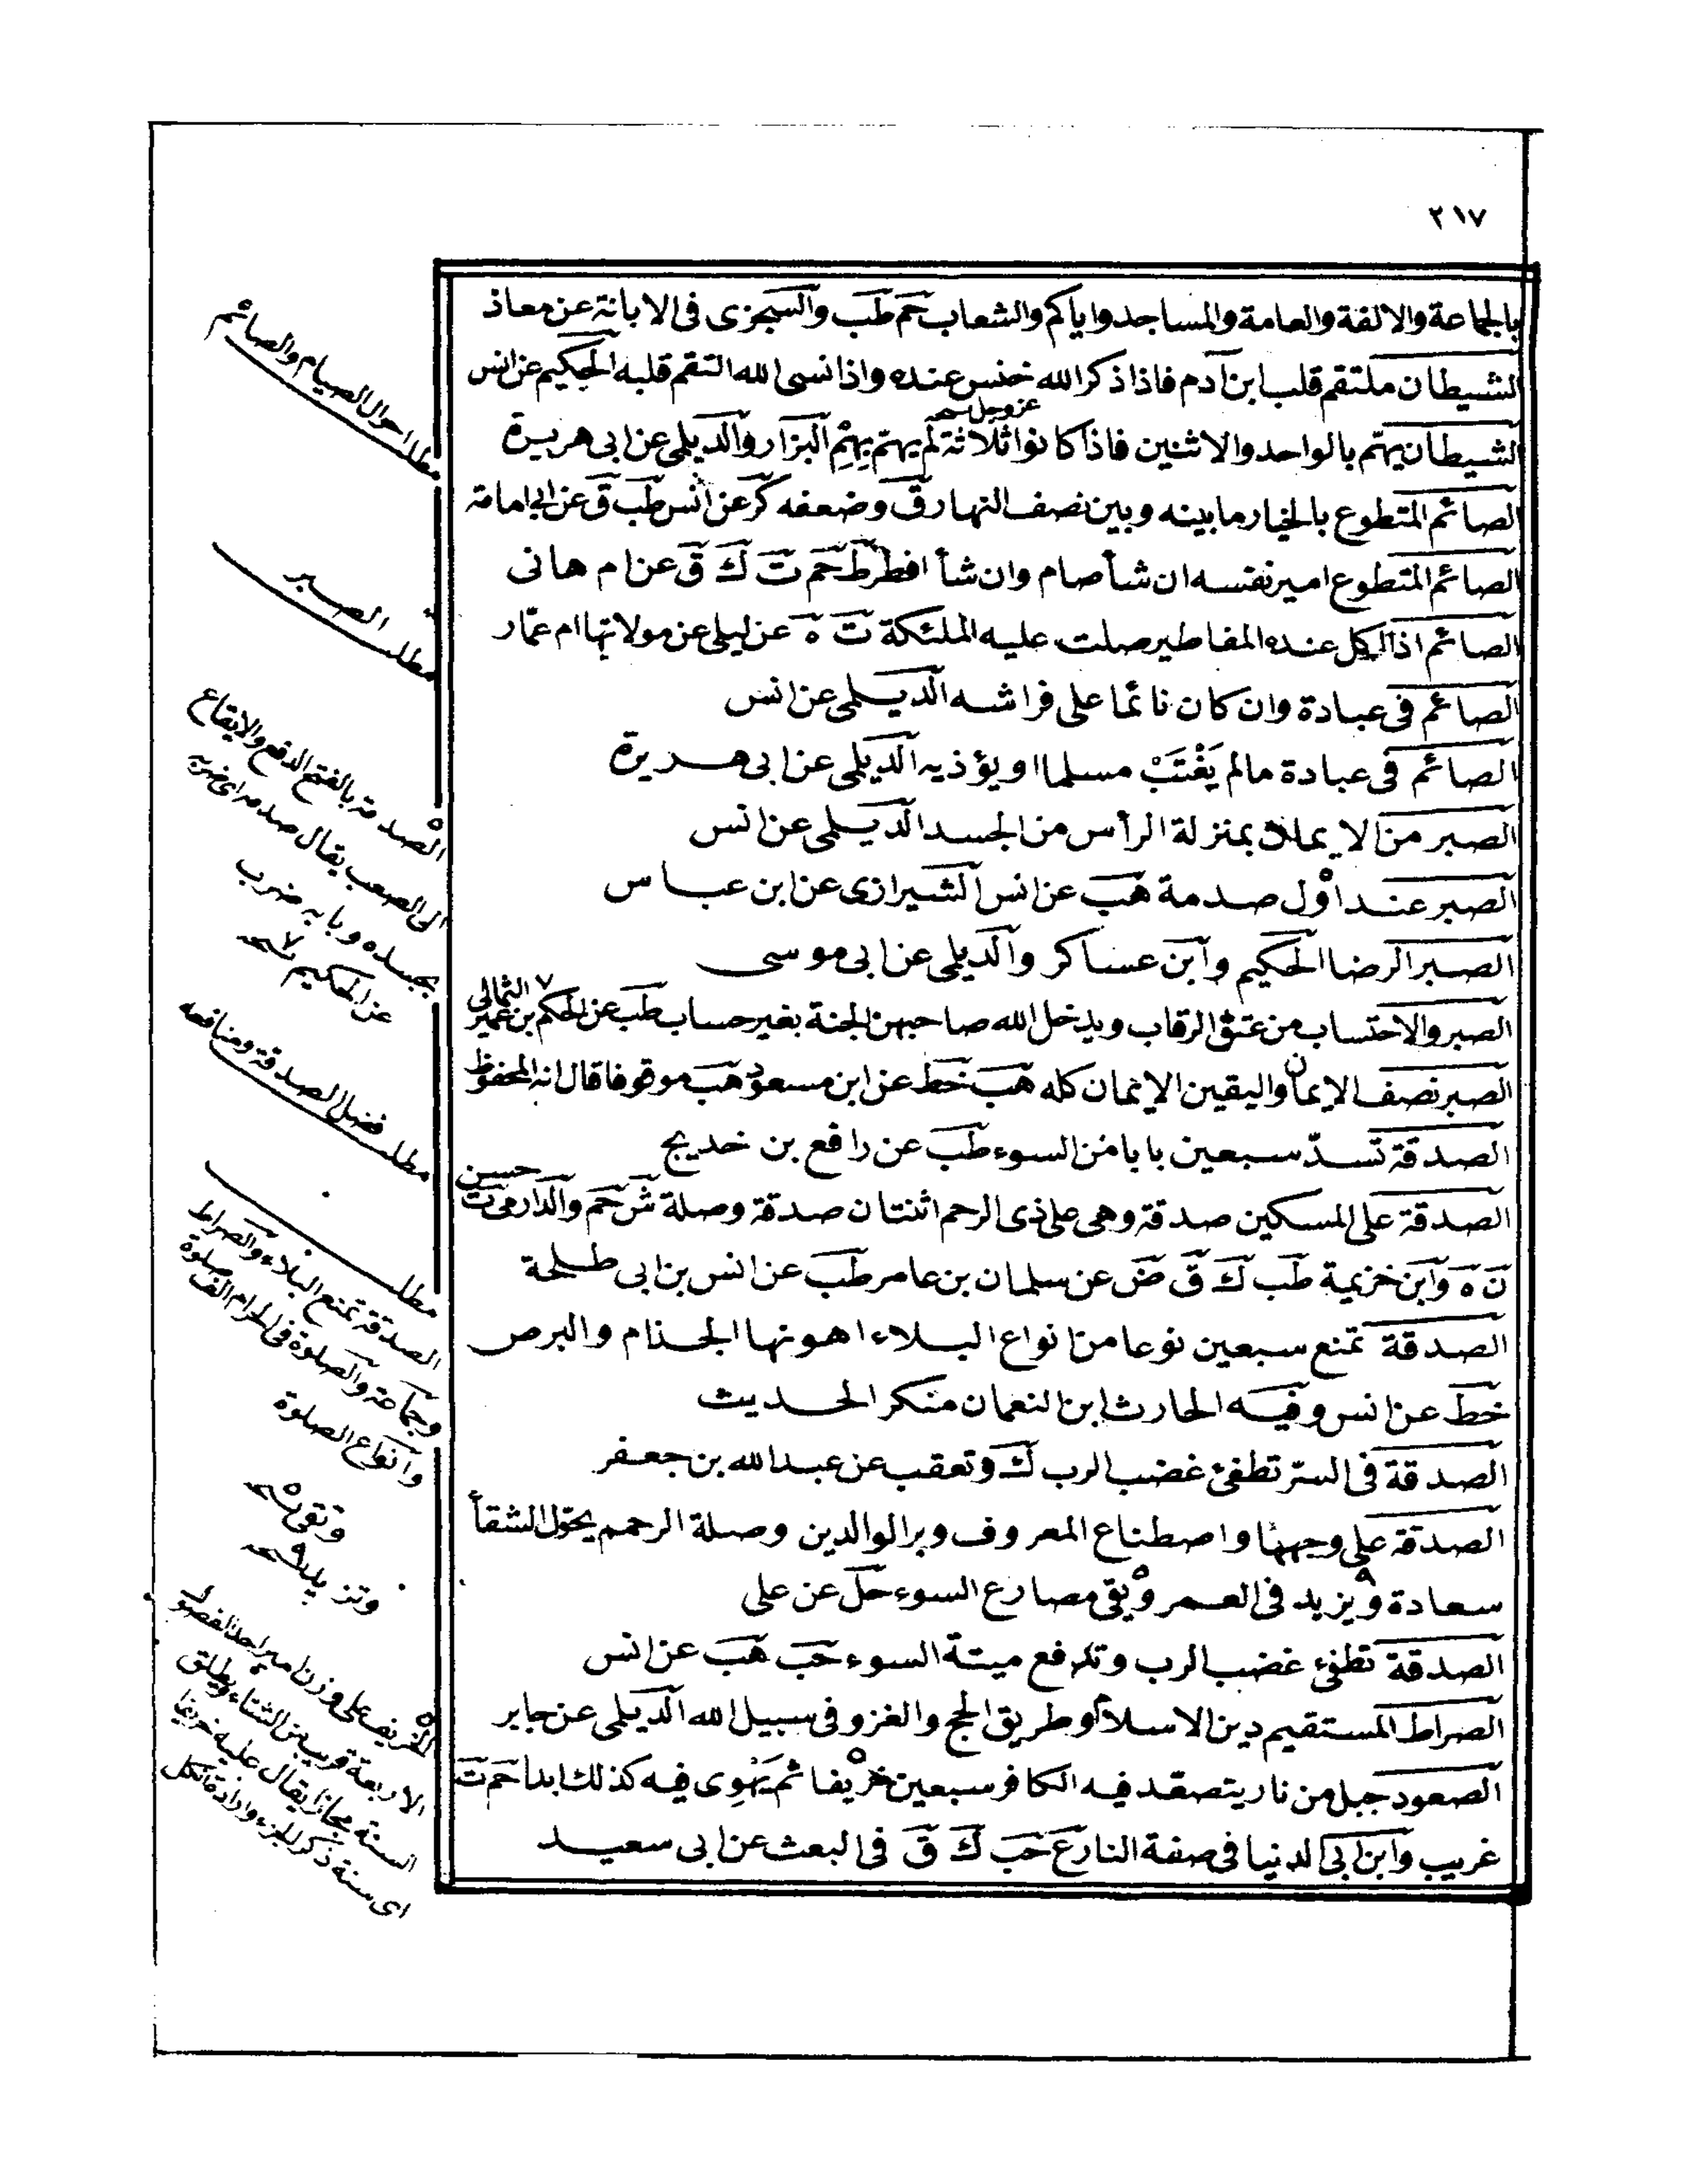 ٢١٧
بالجماعة والالفة والعامة والمساجد واياكم والشعاب حم طب والسجزى فى الابانة عن معاذ
الشيطان ملتقم قلب ابن آدم فاذا ذكر الله خنس عنده واذا نسى الله التقم قلبه الحكيم عن انس
عز وجل
الشيطان يهتم بالواحد والاثنين فاذا كانوا ثلاثة لم يهتم بهم البزار والديلمى عن ابى هريرة
الصائم المتطوع بالخيار ما بينه وبين نصف النهار ق وضعفه كر عن انس طب ق عن ابى امامة
الصائم المتطوع امير نفسه ان شأ صام وان شأ افطر ط حم ت ك ق عن ام هانى
الصائم اذا اكل عنده المفاطير صلت عليه الملئكة ت ه عن ليلى عن مولاتها ام عمّار
الصائم فى عبادة وان كان نائما على فراشه الديلمى عن انس
الصائم فى عبادة مالم يَغْتَبْ مسلما او يؤذيه الديلمى عن ابى هريرة
الصبر من الايمان بمنزلة الرأس من الجسد الديلمى عن انس
الصبر عند اول صدمة هب عن انس الشيرازى عن ابن عباس
الصبر الرضا الحكيم وابن عساكر والديلمى عن ابى موسى
الصبر والاحتساب من عتق الرقاب ويدخل الله صاحبهن الجنة بغير حساب طب عن الحكم بن عمير ٧ الثمالى
الصبر نصف الايمان واليقين الايمان كله هب خط عن ابن مسعود هب موقوفا قال انه المحفوظ
الصدقة تسدّ سبعين بابا من السوء طب عن رافع بن خديج
الصدقة على المسكين صدقة وهى على ذى الرحم اثنتان صدقة وصلة ش حم والدارمى ت حسن
ن ه وابن خزيمة طب ك ق ض عن سلمان بن عامر طب عن انس بن ابى طلحة
الصدقة تمنع سبعين نوعا من انواع البلاء اهونها الجذام والبرص
خط عن انس وفيه الحارث ابن النعمان منكر الحديث
الصدقة فى السرّ تطفئ غضب الرب ك وتعقب عن عبد الله بن جعفر
الصدقة على وجهها واصطناع المعروف وبر الوالدين وصلة الرحم يحوّل الشقأ
سعادة ويزيد فى العمر ويقى مصارع السوء حل عن على
الصدقة تطفئ غضب الرب وتدفع ميتة السوء حب هب عن انس
الصراط المستقيم دين الاسلام او طريق الحج والغزو فى سبيل الله الديلمى عن جابر
الصعود جبل من نار يتصعّد فيه الكافر سبعين خريفا ثم يَهْوِى فيه كذلك ابدا حم ت
غريب وابن ابى الدنيا فى صفة النار ع حب ك ق فى البعث عن ابى سعيد
مطلب احوال الصيام والصائم
مطلب الصبر
الصدمة بالفتح الدفع والايقاع
الى الصعب يقال صدمه اى ضربه
بجسده وبابه ضرب
عن الحكيم
مطلب فضل الصدقة ومنافعه
مطلب
الصدقة تمنع البلاء والصراط
وجماعة والصلوة فى الحرام الف صلوة
وانواع الصلوة
وتقى
وتزيد
الخريف على وزن امير احد الفصول
الاربعة قريب من الشتاء ويطلق
السنة مجازا يقال عليه خريفا
اى سنة ذكر الجزء وارادة الكل